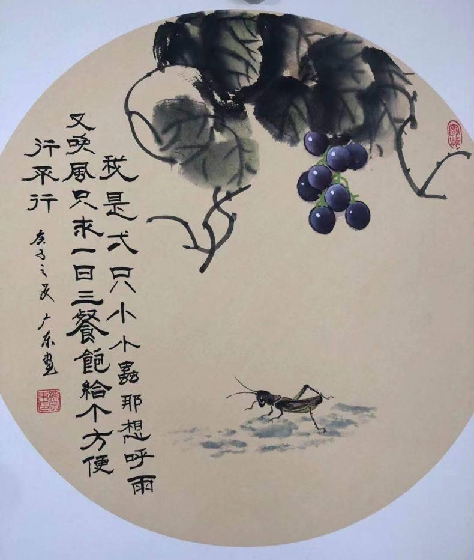 我是弌只小小蟲耶想呼雨
又唤風只求一日三餐飽給个方便
行平行
庚子之夏广东画